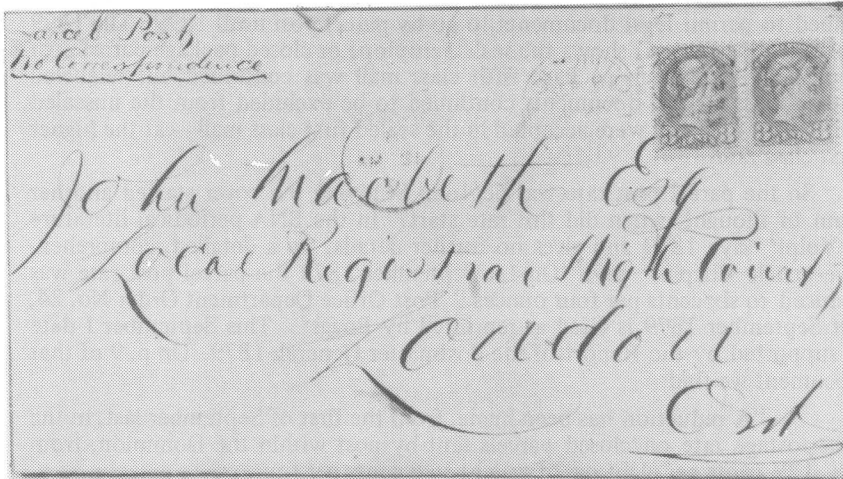 Parcel Post,
No Correspondence
John Macbeth Esq
Local Registrar High Court,
London
Ont